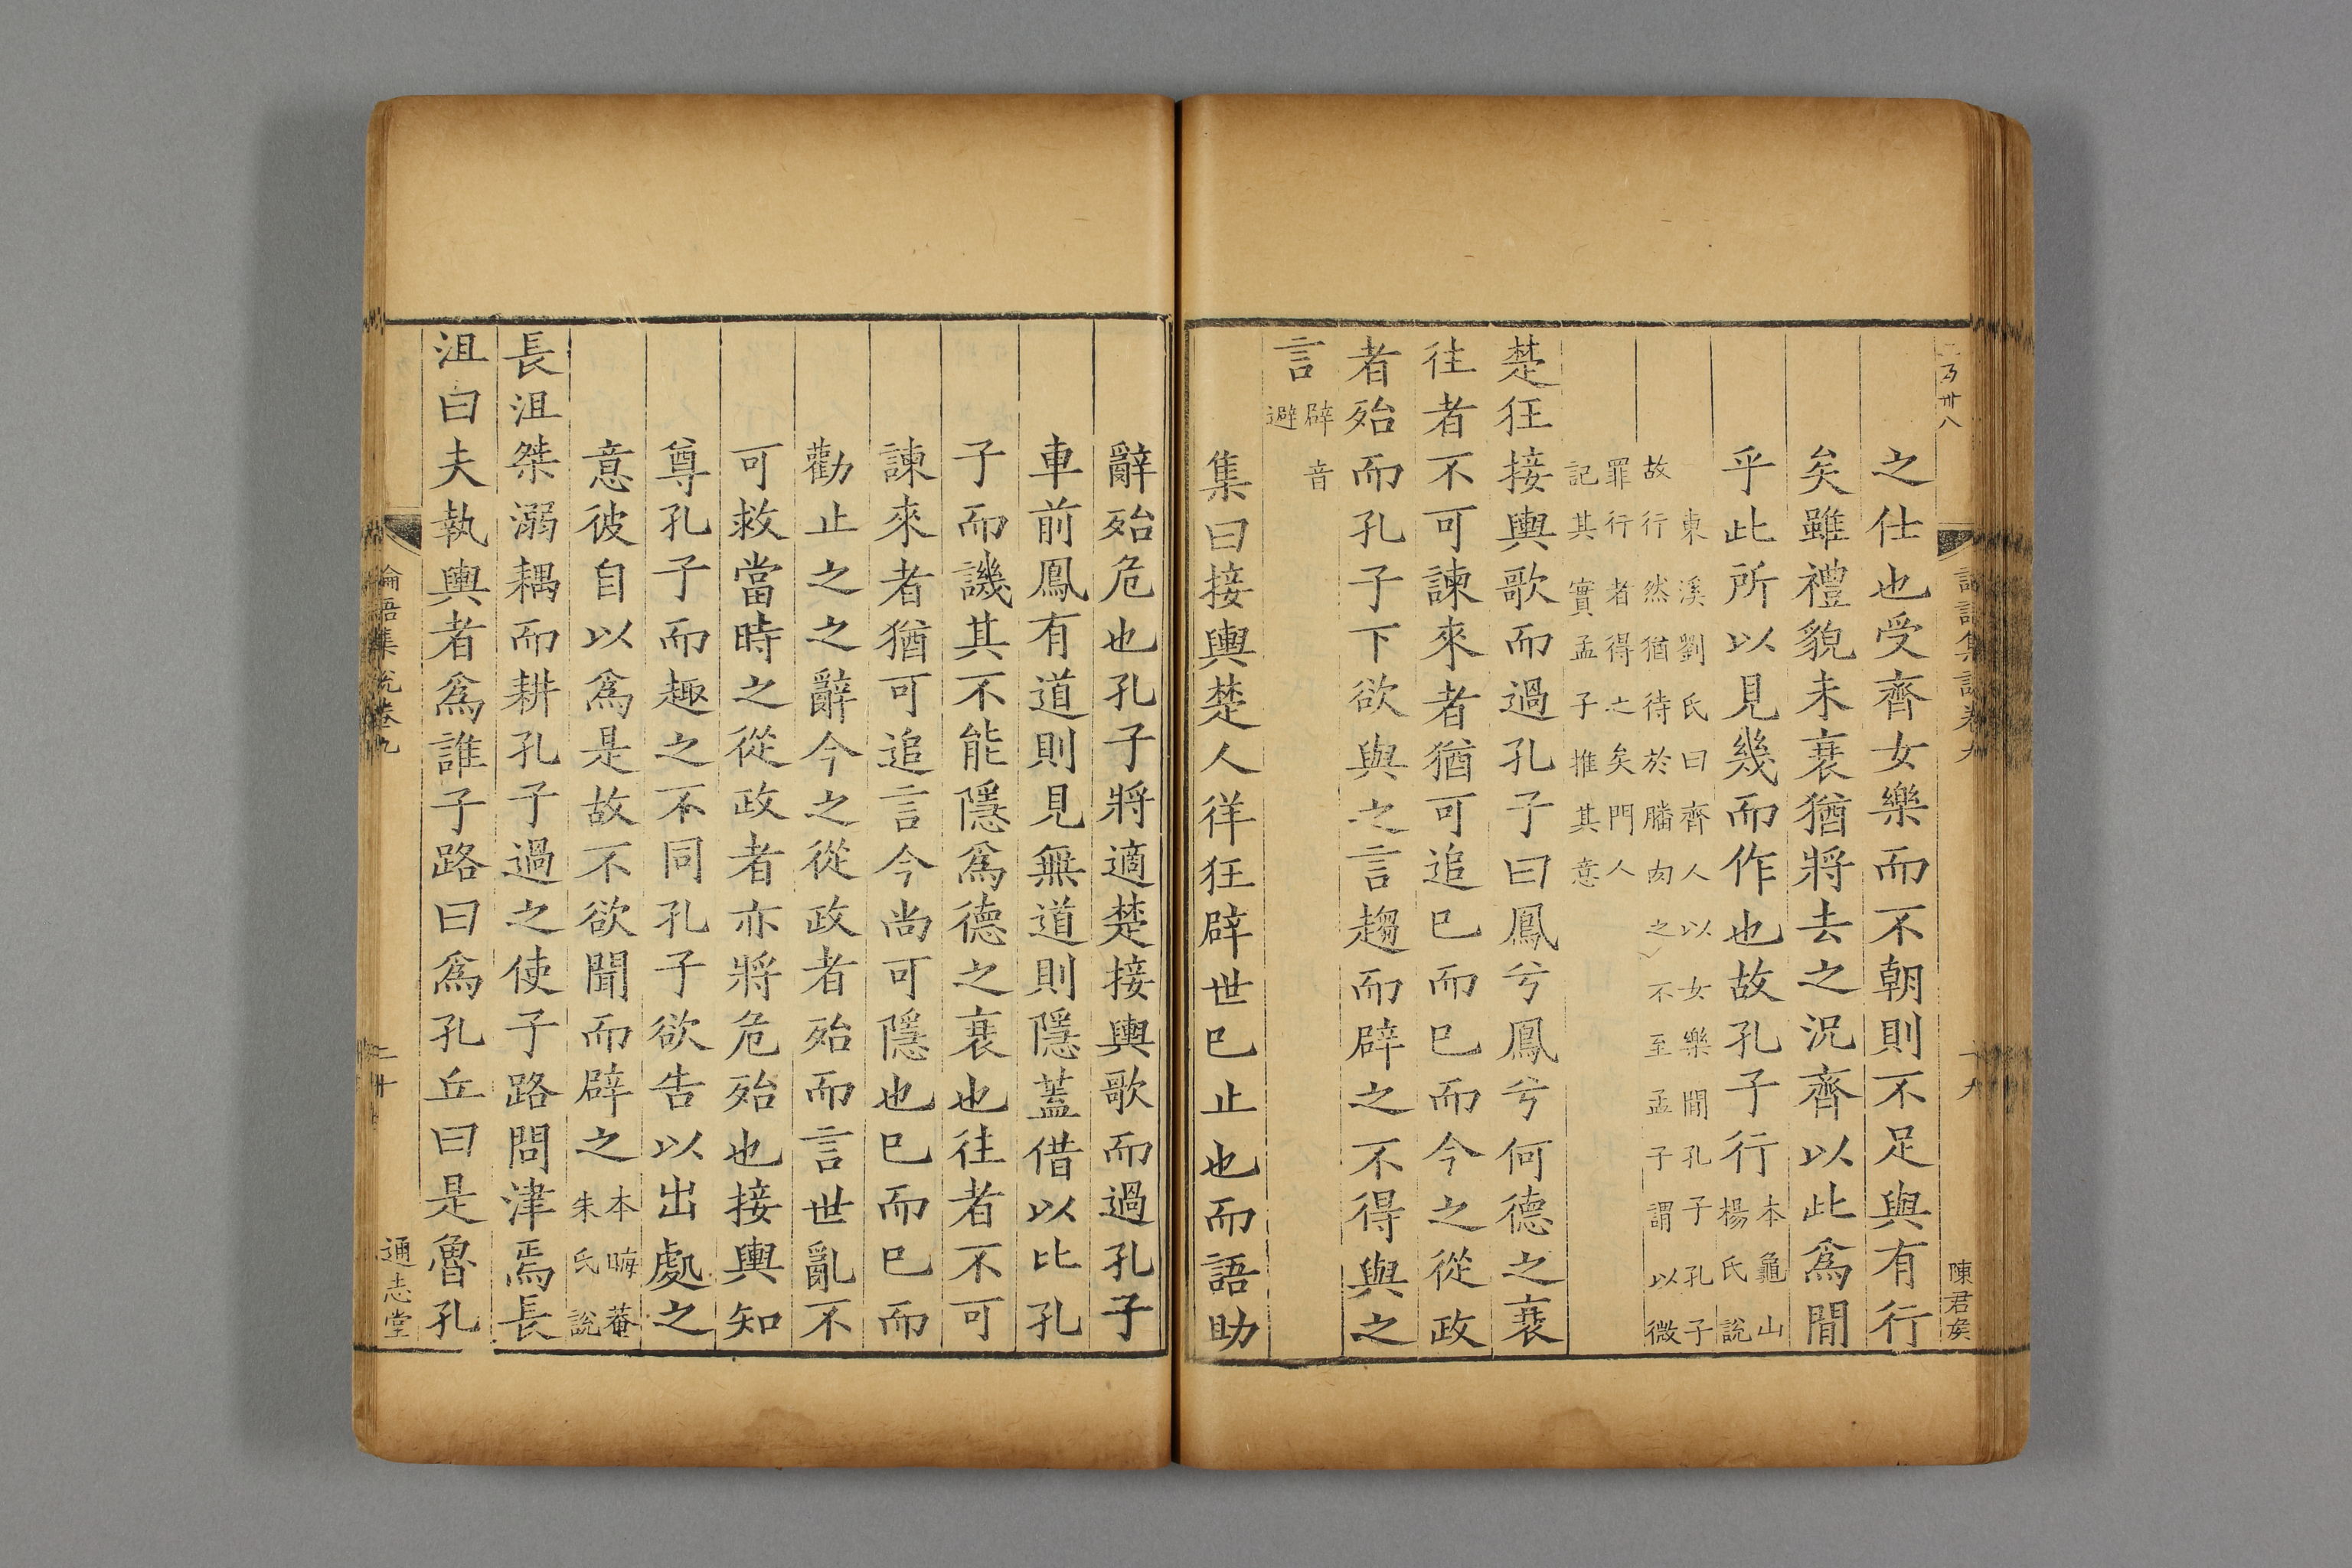 之仕也受齊女樂而不朝則不足與有行
矣雖禮貌未衰猶將去之況齊以此爲間
乎此所以見幾而作也故孔子行本龜山楊氏說
東溪劉氏曰齊人以女樂間孔子孔子
故行然猶待於膰肉之不至孟子謂以微
罪行者得之矣門人
記其實孟子推其意
楚狂接輿歌而過孔子曰鳳兮鳳兮何德之衰
往者不可諫來者猶可追已而已而今之從政
者殆而孔子下欲與之言趨而辟之不得與之
言辟音避
集曰接輿楚人徉狂辟世已止也而語助
辭殆危也孔子將適楚接輿歌而過孔子
車前鳳有道則見無道則隱蓋借以比孔
子而譏其不能隱爲德之衰也往者不可
諫來者猶可追言今尚可隱也已而已而
勸止之之辭今之從政者殆而言世亂不
可救當時之從政者亦將危殆也接輿知
尊孔子而趣之不同孔子欲告以出處之
意彼自以爲是故不欲聞而辟之本晦菴朱氏說
長沮桀溺耦而耕孔子過之使子路問津焉長
沮曰夫執輿者爲誰子路曰爲孔丘曰是魯孔
論語集說卷九
通志堂
陳君矦